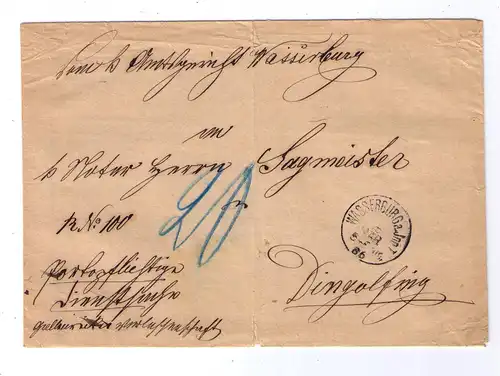 Vom k. Amtsgericht Wasserburg
an
k. Notar Herrn Sagmeister
R. No. 100
20
in
Portopflichtige
Dienstsache
Verlassenschaft
Dingolfing
WASSERBURG a. Inn
86